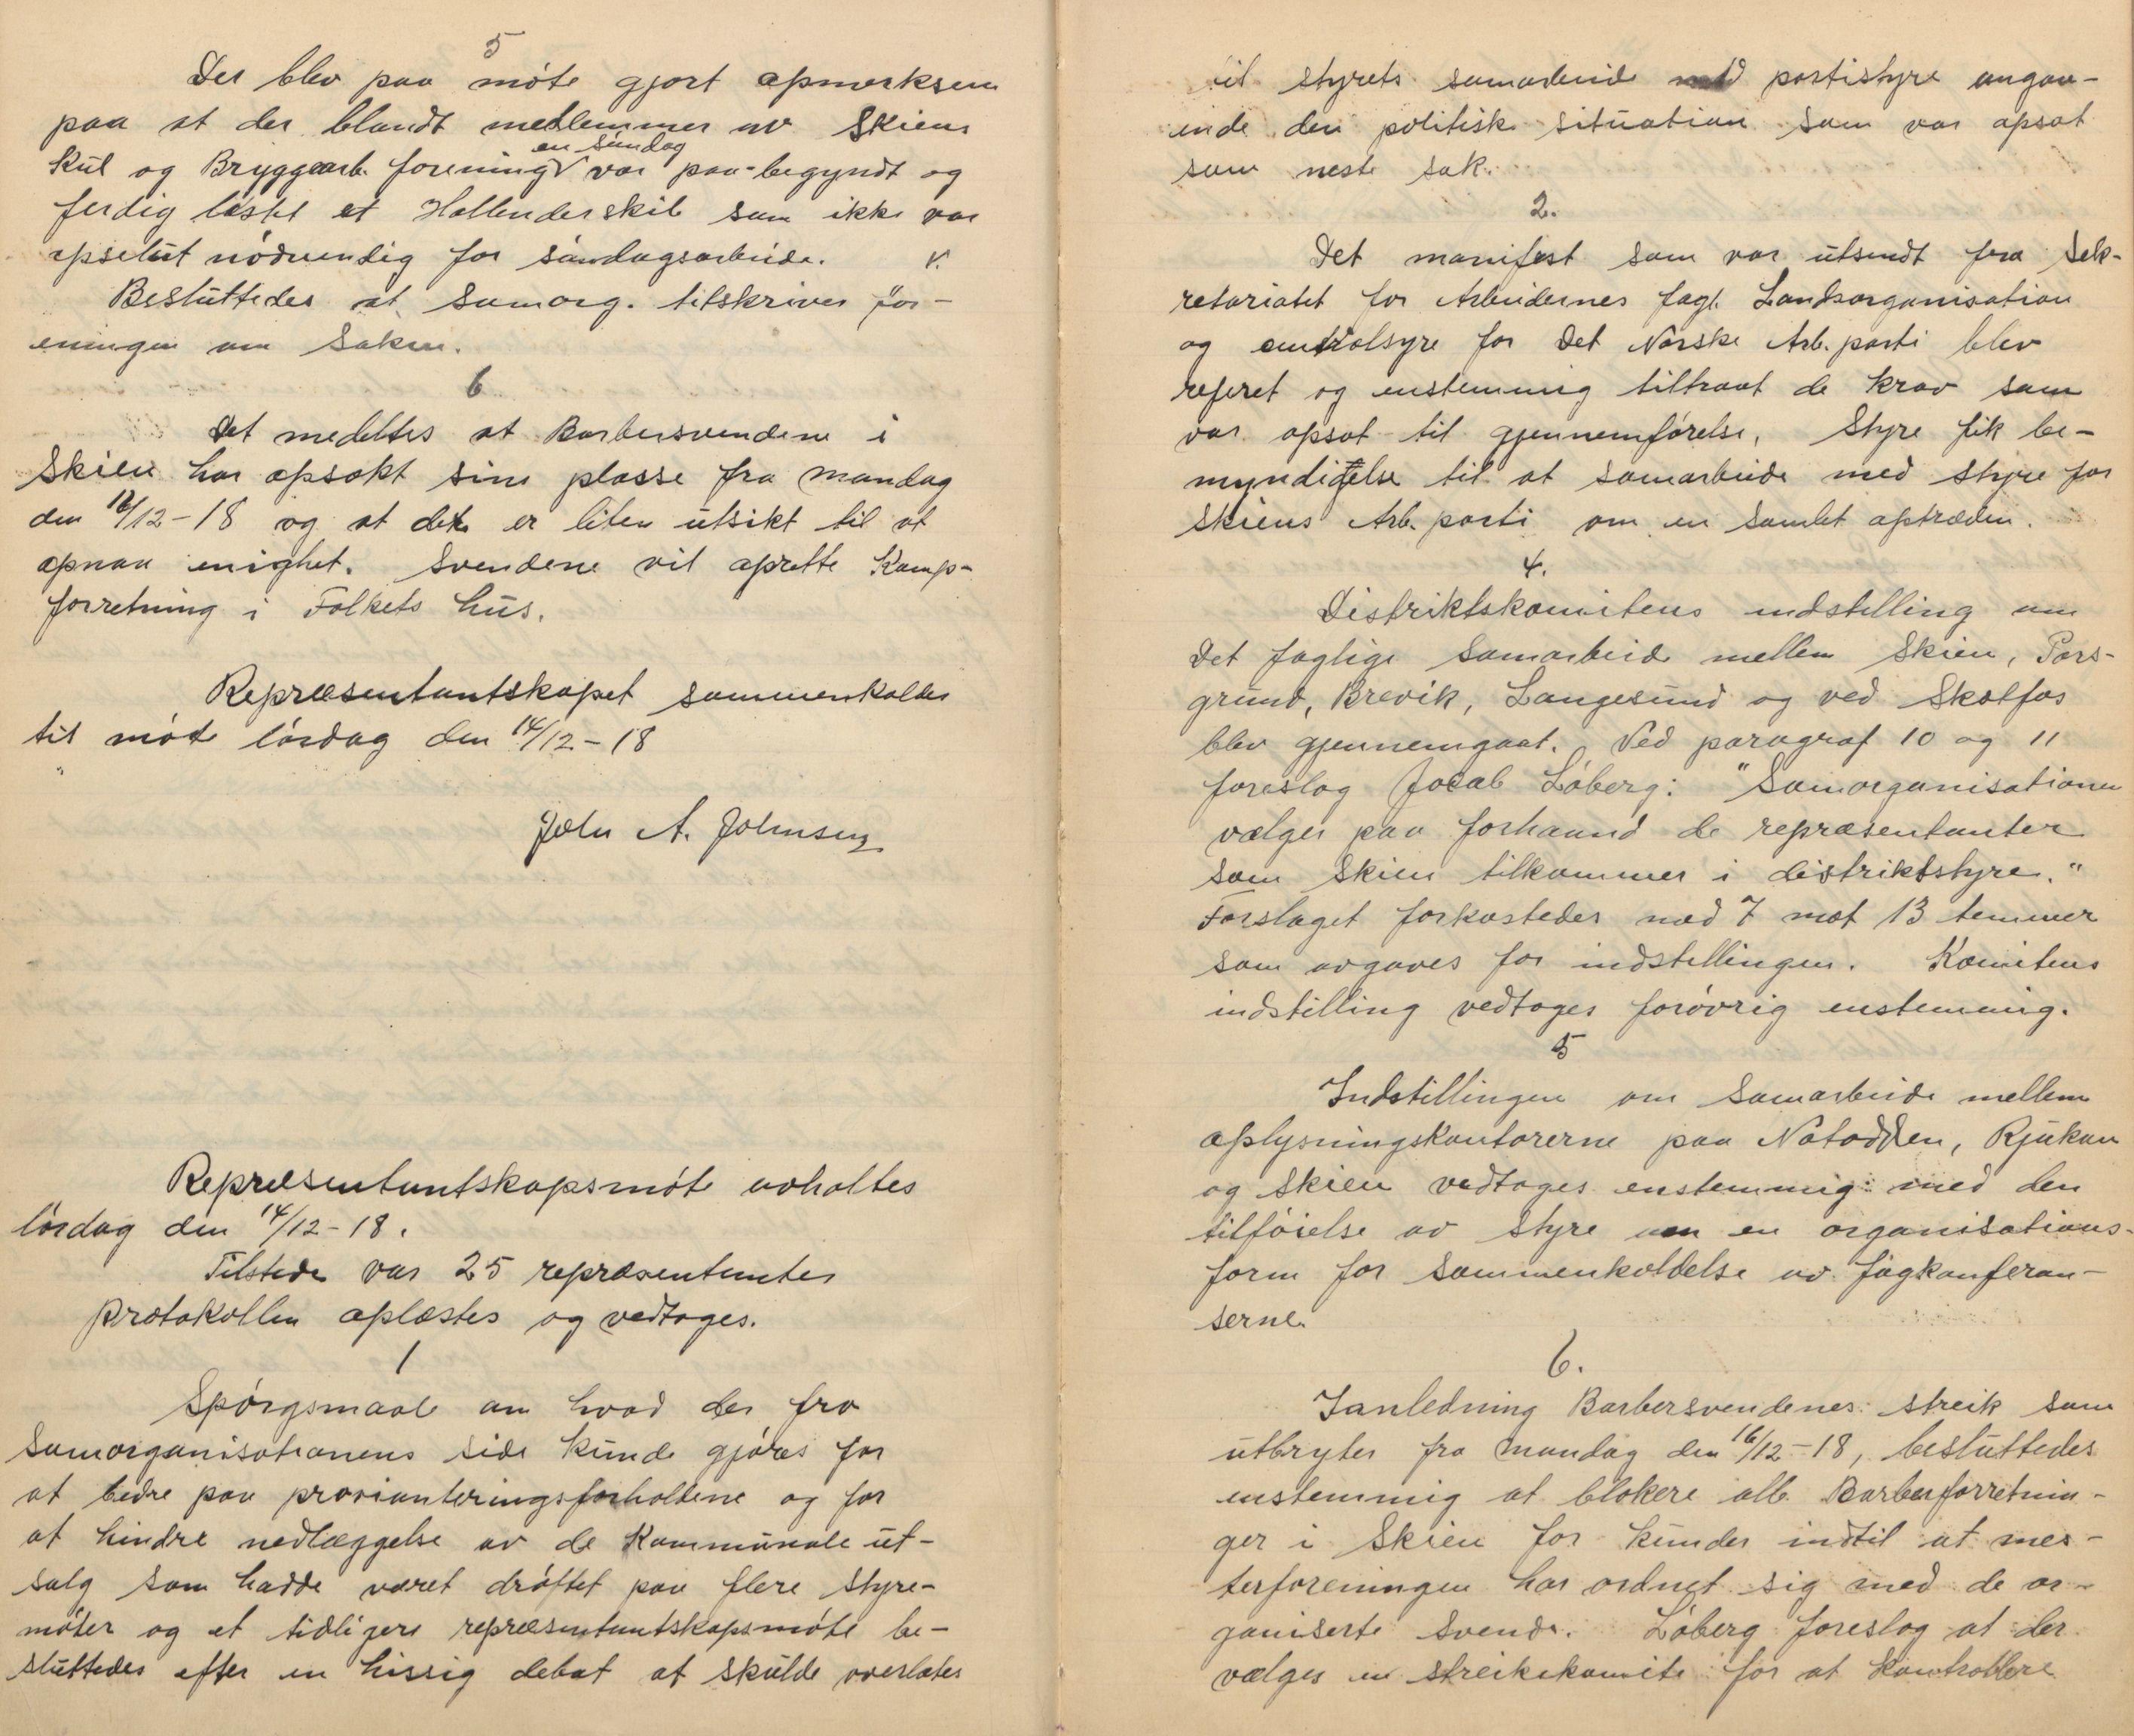 5
Der blev paa møte gjort opmerksom
paa at der blandt medlemmer av Skiens
Kul og Bryggearb. forening en søndag var paa-begyndt og
ferdig lastet et Hollenderskib som ikke var
apselut nødvendig for søndagsarbeide.
Besluttedes at Samorg. tilskriver for-
eningen om saken.
6
Det medeltes at Barbersvendene i
Skien har opsakt sine plasse fra mandag
den 16/12-18 og at det er liten utsikt til at
opnaa enighet. Svendene vil oprette Kamp-
forretning i Folkets hus.
Repræsentantskapet sammenkaldes
til møte lørdag den 14/12-18
John A. Johnsen
Repræsentantskapsmøte avholtes
lørdag den 14/12-18.
Tilstede var 25 repræsentanter
Protokollen oplæstes og vedtoges.
1
Spørgsmaal om hvad der fra
Samorganisationens side kunde gjøres for
at bedre paa provianteringsforholdene og for
at hindre nedlæggelse av de Kommunale ut-
salg som hadde været drøftet paa flere styre-
møter og et tidligere repræsentantskapsmøte be-
sluttedes efter en hissig debat at skulde overlates
til styrets samarbeide med partistyre angaa-
ende den politiske situation som var opsat
som neste sak.
2.
Det manifest som var utsendt fra Sek-
retariatet for Arbeidernes fagl. Landsorganisation
og centralsyre for Det Norske Arb. parti blev
referet og enstemmig tiltraat de krav som
var opsat til gjennemførelse. Styre fik be-
myndigelse til at samarbeide med styre for
Skiens Arb. parti om en samlet optræden.
4.
Distriktskomiteens indstilling om
Det faglige samarbeide mellem Skien, Pors-
grund, Brevik, Langesund og ved Skotfos
blev gjennemgaat. Ved paragraf 10 og 11
foreslog Jocab Løberg: "Samorganisationen
vælger paa forhaand de repræsentanter
som Skien tilkommer i distriktstyre."
Forslaget forkastedes med 7 mot 13 temmer
som avgaves for indstillingen. Komitens
indstilling vedtoges forøvrig enstemmig.
5
Indstillingen om Samarbeide mellem
oplysningskontorerne paa Notodden, Rjukan
og Skien vedtoges enstemmig med den
tilføielse av styre om en organisations-
form for sammenkoldelse av fagkonferan-
serne.
6.
Ianledning Barbersvendenes streik som
utbryter fra mandag den 16/12-18, besluttedes
enstemmig at blokere alle Barberforretnin-
ger i Skien for kunder indtil at mes-
terforeningen har ordnet sig med de or-
ganiserte svende. Løberg foreslog at der
vælges en streikekomite for at kontrollere